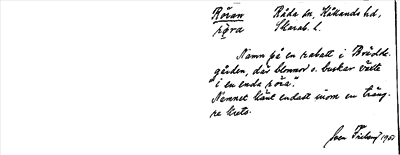 Röran Råda sn, Kållands hd,
röra Skarab. l.
Namn på en rabatt i Brädde-
gården, där blommor o. buskar växte
"i en enda röra".
Namnet känt endast inom en träng-
re krets.
Sven 1951